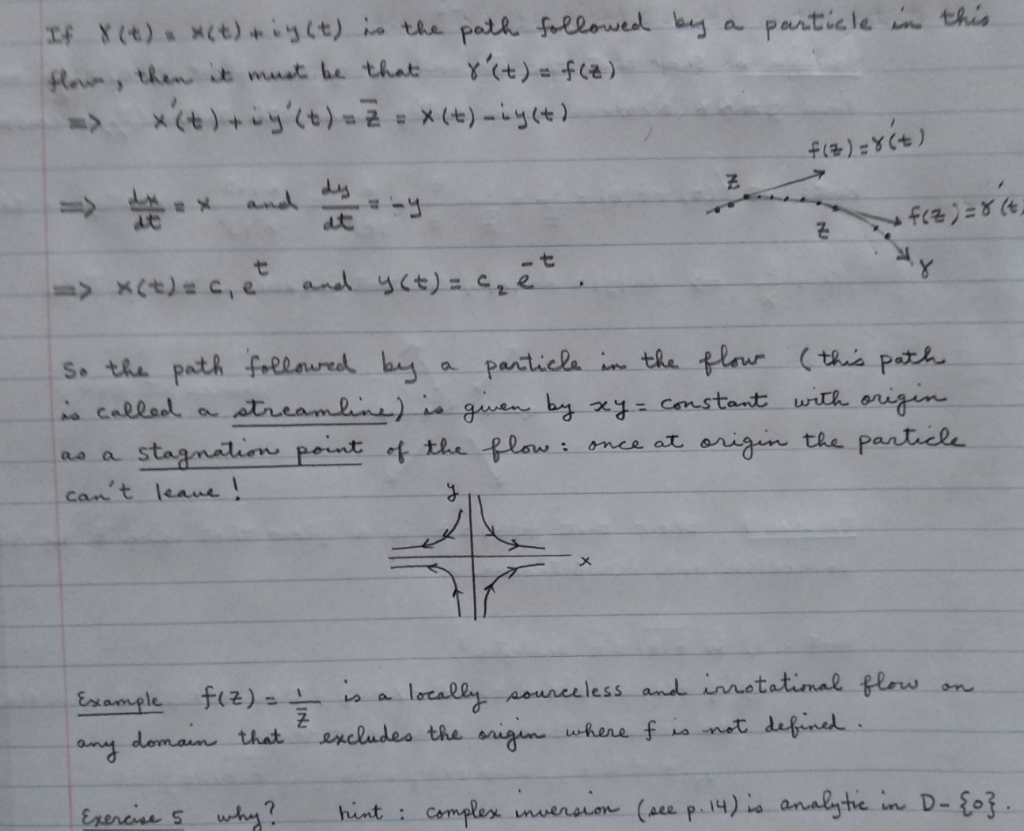 If γ(t) = x(t) + iy(t) is the path followed by a particle in this
flow, then it must be that γ'(t) = f(z)
=> x'(t) + iy'(t) = z̅ = x(t) - iy(t)
f(z) = γ'(t)
z
=> dx/dt = x and dy/dt = -y
f(z) = γ'(t)
z
γ
=> x(t) = c₁e^t and y(t) = c₂e^-t .
So the path followed by a particle in the flow (this path
is called a streamline) is given by xy = constant with origin
as a stagnation point of the flow : once at origin the particle
can't leave !
y
x
Example f(z) = 1/z̅ is a locally sourceless and irrotational flow on
any domain that excludes the origin where f is not defined .
Exercise 5 why? hint : complex inversion (see p. 14) is analytic in D - {0} .